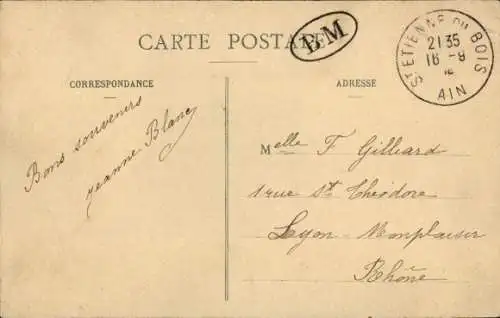 CARTE POSTALE
BM
ST ETIENNE DU BOIS
21 35
16 - 9
AIN
CORRESPONDANCE
ADRESSE
Bons souvenirs
Jeanne Blanc
Melle F Gilliard
1 rue St Théodore
Lyon - Monplaisir
Rhône